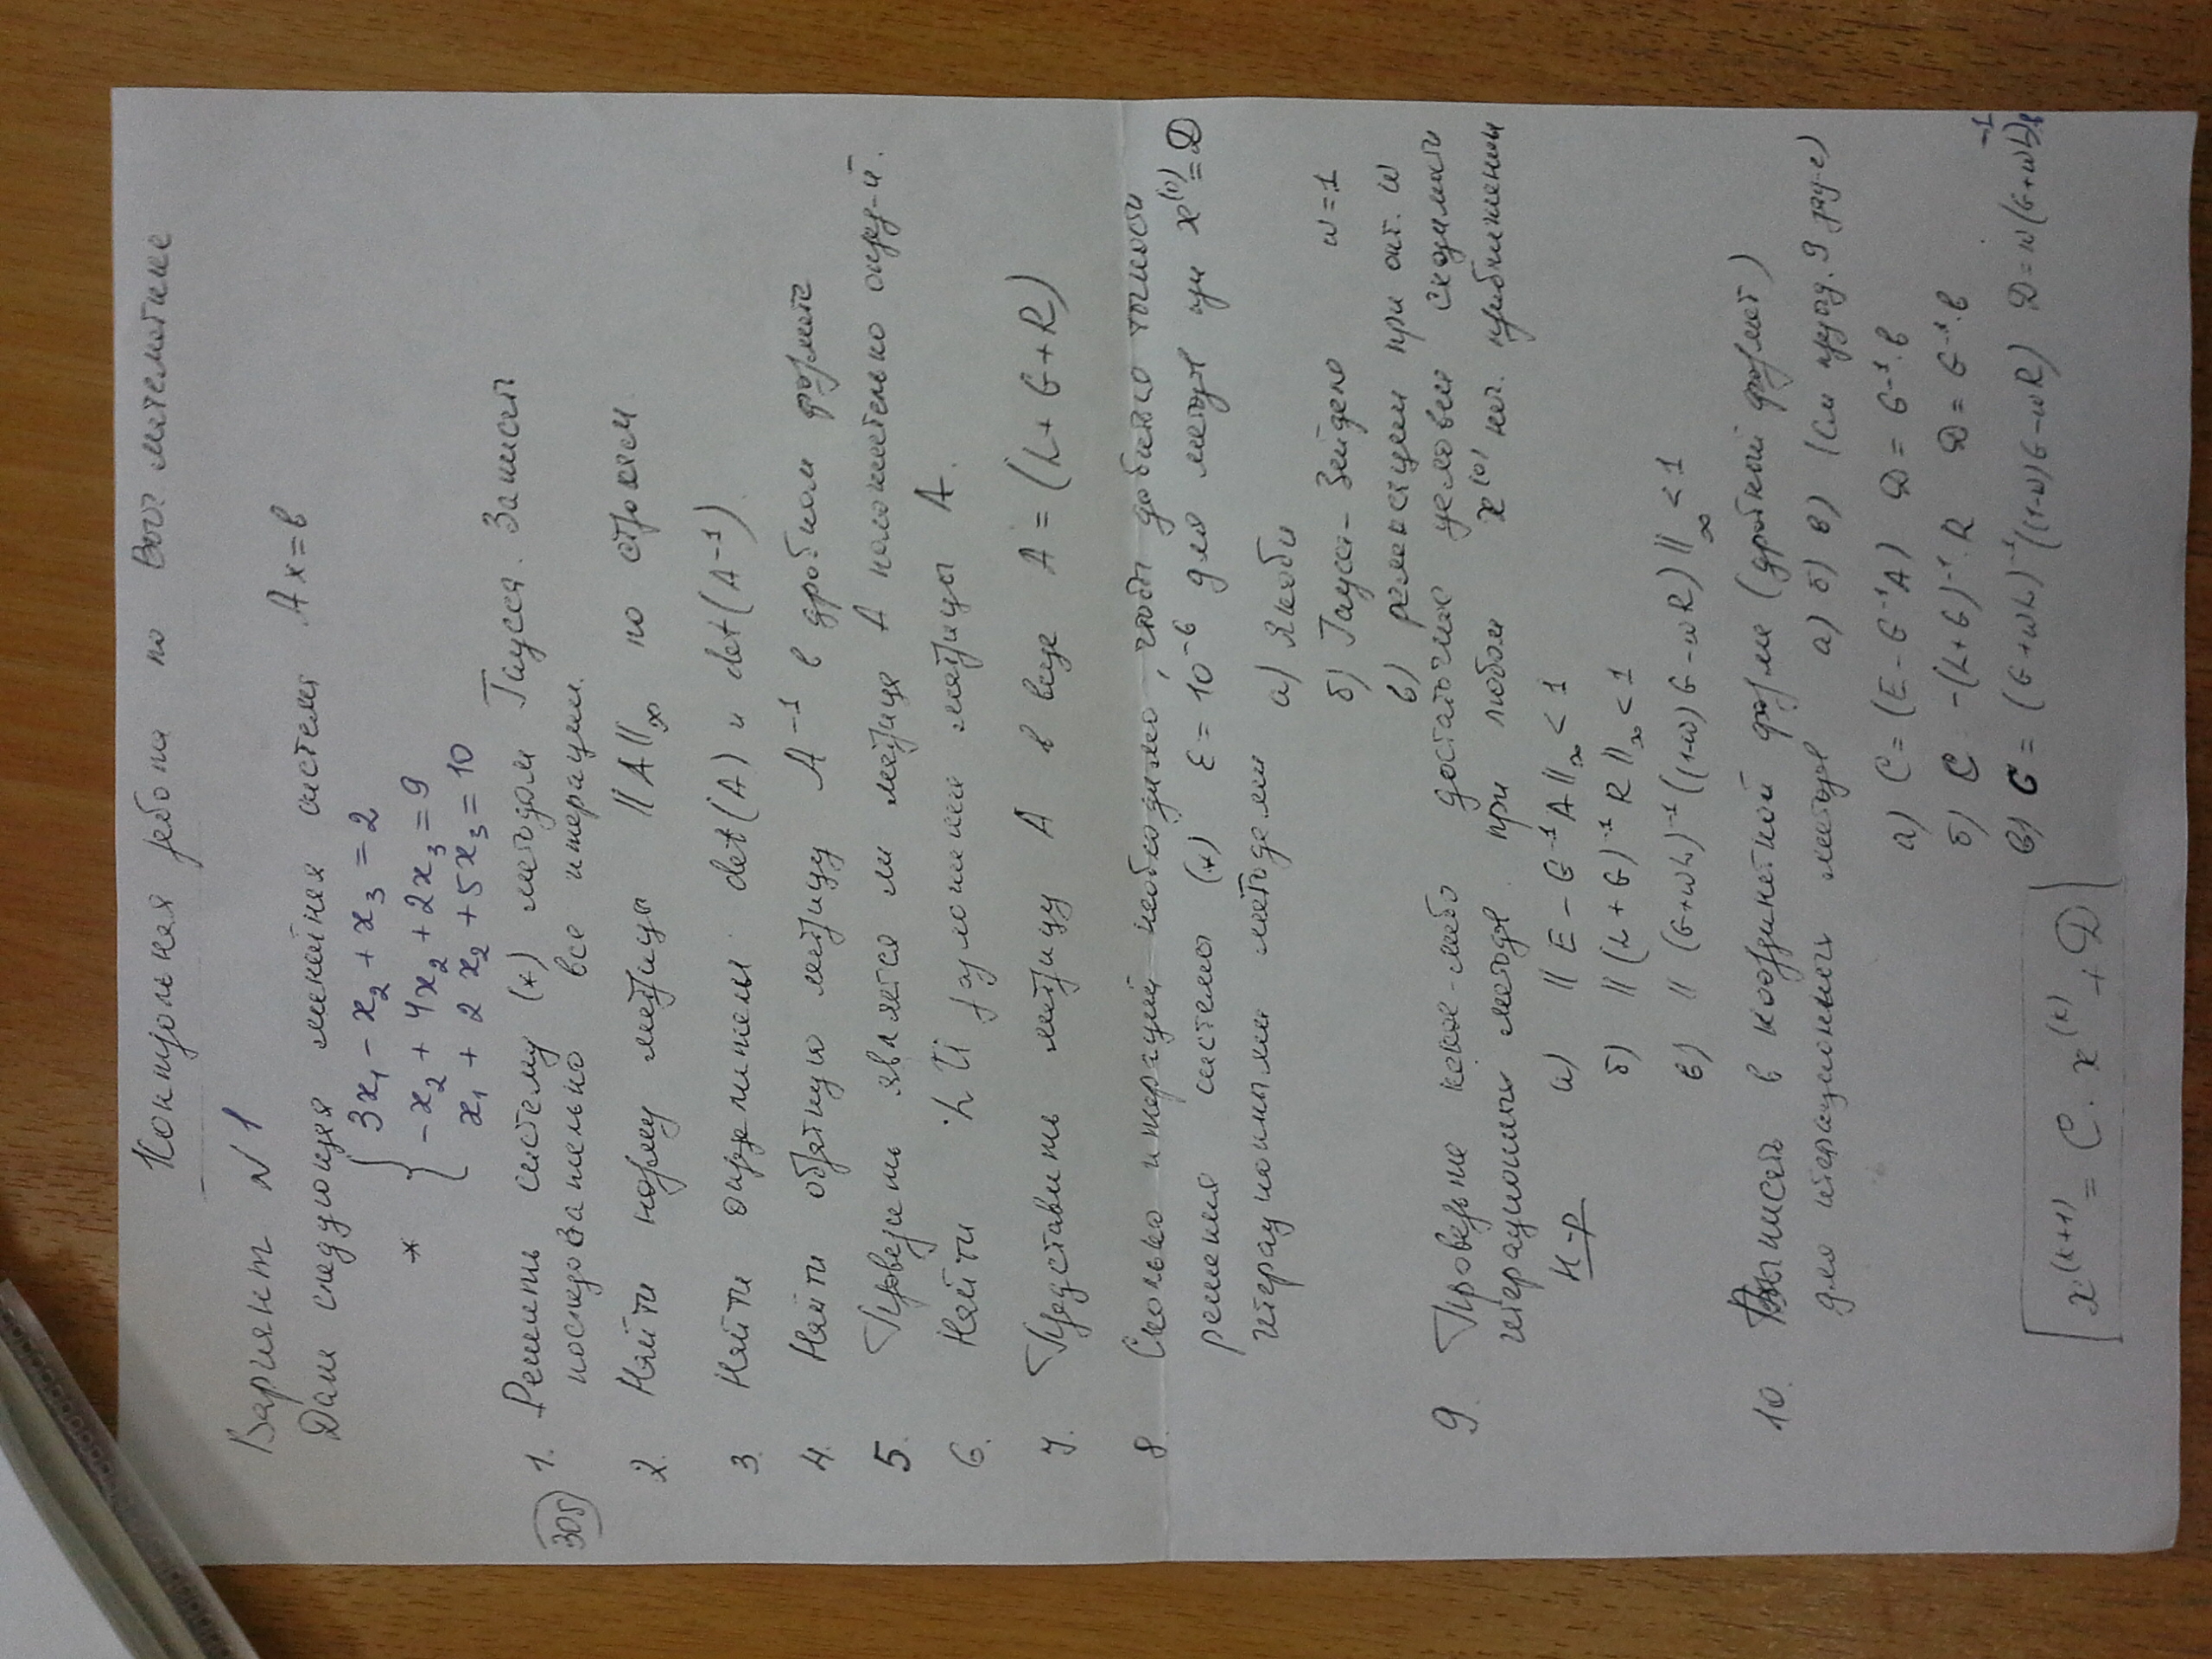 Контрольная работа по Выч математике
Вариант N 1
Дана следующая линейная система Ax = b
3x₁ - x₂ + x₃ = 2
* { -x₂ + 4x₂ + 2x₃ = 9
x₁ + 2x₂ + 5x₃ = 10
305
1. Решить систему (*) методом Гаусса. Записать
последовательно все итерации.
2. Найти норму матрицы ||A||∞ по строкам.
3. Найти определители det(A) и det(A⁻¹)
4. Найти обратную матрицу A⁻¹ в дробном формате
5. Проверить является ли матрица A положительно опред-й.
6. Найти LU разложение матрицы A.
7. Представить матрицу A в виде A = (L + G + R)
8. Сколько итераций необходимо, чтобы добиться точности
решения системы (*) ε = 10⁻⁶ для метода при x⁽⁰⁾ = D
итерационными методами а) Якоби
б) Гаусс-Зейдель w = 1
в) релаксации при опт. w
9. Проверьте какое-либо достаточное условие сходимости
итерационных методов при любом x⁽⁰⁾ нач. приближении
н-р а) || E - G⁻¹A ||∞ < 1
б) || (L + G)⁻¹ R ||∞ < 1
в) || (G + wL)⁻¹ ((1-w)G - wR) ||∞ < 1
10. Выписать в координатной форме (дробный формат)
для итерационных методов а) б) в) (см пред. 9 зад-е)
а) C = (E - G⁻¹A) D = G⁻¹·b
б) C -(L + G)⁻¹·R D = G⁻¹·b
в) C = (G + wL)⁻¹((1-w)G - wR) D = w(G + wL)⁻¹b
[x⁽ᵏ⁺¹⁾ = C · x⁽ᵏ⁾ + D]